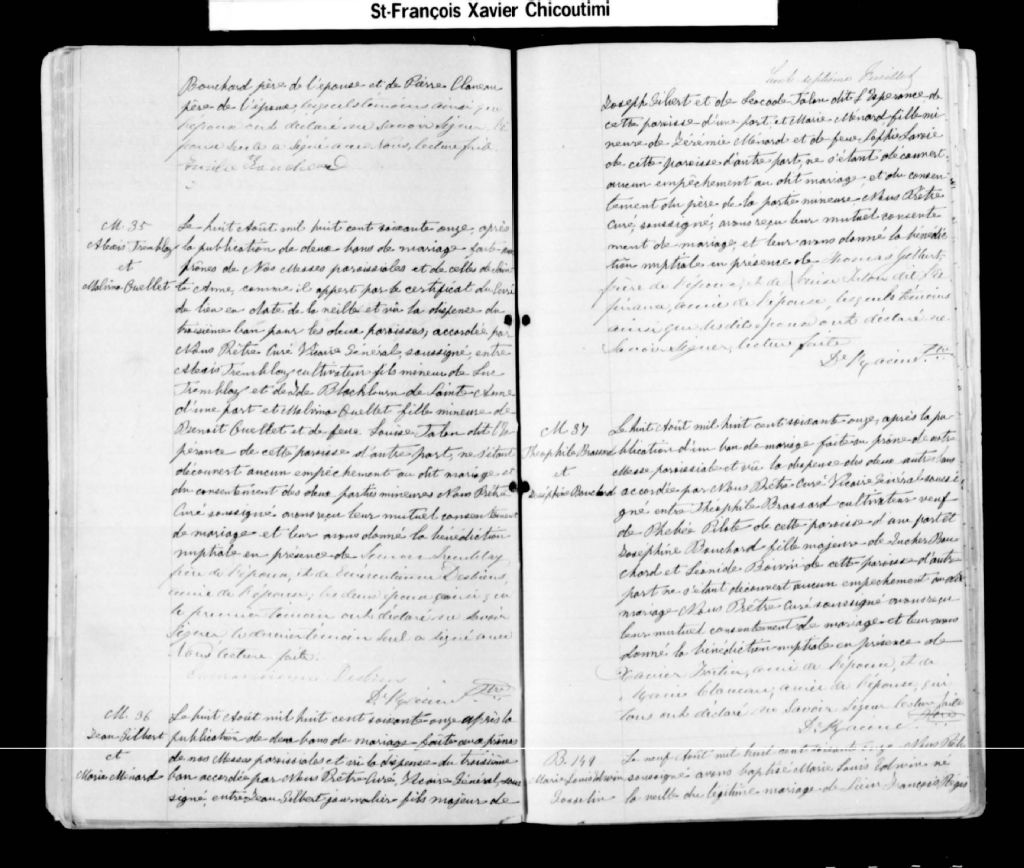 St-François Xavier Chicoutimi
Bouchard père de l'épouse et de Pierre Claveau
père de l'époux, lesquels témoins ainsi que
l'époux ont déclaré ne savoir signer. L'é
pouse seule a signé avec nous, lecture faite
M. 35
Alexis Tremblay
et
Malvina Ouellet
Le huit Août mil huit cent soixante onze, après
la publication de deux bans de mariage faite au
prônes de Nos Messes paroissiales et de celles de Sain
te Anne, comme il appert par le certificat du Curé
du lieu en date de la veille et vu la dispense du
troisième ban pour les deux paroisses, accordée par
Nous Prêtre Curé Vicaire Général, soussigné, entre
Alexis Tremblay cultivateur fils mineur de Luc
Tremblay et de Blackburn de Sainte Anne
d'une part et Malvina Ouellet fille mineure de
Benoit Ouellet et de feue Louise Talon dit l'Es
pérance de cette paroisse d'autre part, ne s'étant
découvert aucun empêchement au dit mariage et
du consentement des deux parties mineures Nous Prêtre
Curé soussigné avons reçu leur mutuel consentement
de mariage et leur avons donné la bénédiction
nuptiale en présence de Tremblay
père de l'époux, et de Desbiens
ami de l'époux; les deux époux ainsi que
le premier témoin ont déclaré ne savoir
signer le dernier témoin seul a signé avec
Nous lecture faite.
Desbiens
D. Racine Ptre
M. 36
Jean Gilbert
et
Marie Ménard
Le huit Août mil huit cent soixante onze après la
publication de deux bans de mariage faite aux prônes
de nos Messes paroissiales et vu la dispense du troisième
ban accordée par Nous Prêtre Curé, Vicaire Général, sous
signé, entre Jean Gilbert journalier fils majeur de
septième feuillet
Joseph Gilbert et de Leocade Talon dit L'Esperance de
cette paroisse d'une part, et Marie Menard fille mi
neure de Jérémie Ménard et de feue Sophie Savoie
de cette paroisse d'autre part, ne s'étant découvert
aucun empêchement au dit mariage et du consen
tement du père de la partie mineure Nous Prêtre
Curé, soussigné, avons reçu leur mutuel consente
ment de mariage, et leur avons donné la bénédic
tion nuptiale en présence de Thomas Gilbert
frère de l'époux, et de Louise Talon dit l'Es
pérance, amie de l'épouse, lesquels témoins
ainsi que les dits époux ont déclaré ne
savoir signer, lecture faite
D. Racine Ptre
M. 37
Théophile Brassard
et
Joséphine Bouchard
Le huit Août mil huit cent soixante onze, après la pu
blication d'un ban de mariage faite au prône de notre
Messe paroissiale et vu la dispense des deux autres bans
accordée par Nous Prêtre Curé Vicaire Général soussi
gné entre Théophile Brassard cultivateur veuf
de Phebée Pilote de cette paroisse d'une part et
Josephine Bouchard fille majeure de Bou
chard et Léonide Boivin de cette paroisse d'autre
part ne s'étant découvert aucun empêchement au dit
mariage Nous Prêtre Curé soussigné avons reçu
leur mutuel consentement de mariage et leur avons
donné la bénédiction nuptiale en présence de
Xavier Fortin, ami de l'époux, et de
Claveau, amie de l'épouse, qui
tous ont déclaré ne savoir signer lecture faite
D. Racine Ptre
B. 149
Marie Louis Edwin
Gosselin
Le neuf Août mil huit cent soixante onze Nous Prêtre
soussigné avons baptisé Marie Louis Edwin né
la veille du légitime mariage de Sieur François Régis